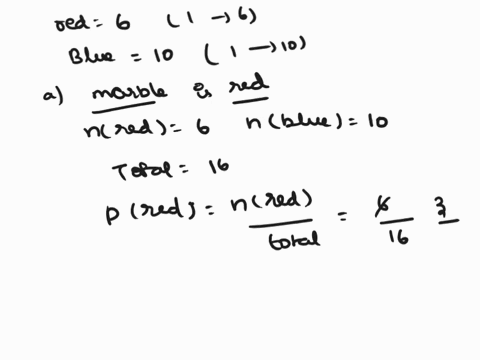 red = 6 (1 → 6)
Blue = 10 (1 → 10)
a) marble is red
n(red) = 6 n(blue) = 10
Total = 16
P(red) = n(red) / total = 6 / 16 3